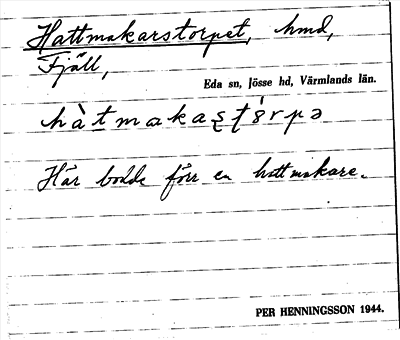 Hattmakarstorpet, hmd,
Fjäll,
Eda sn, Jösse hd, Värmlands län.
hàtmakaşţórpə
Här bodde förr en hattmakare.
PER HENNINGSSON 1944.